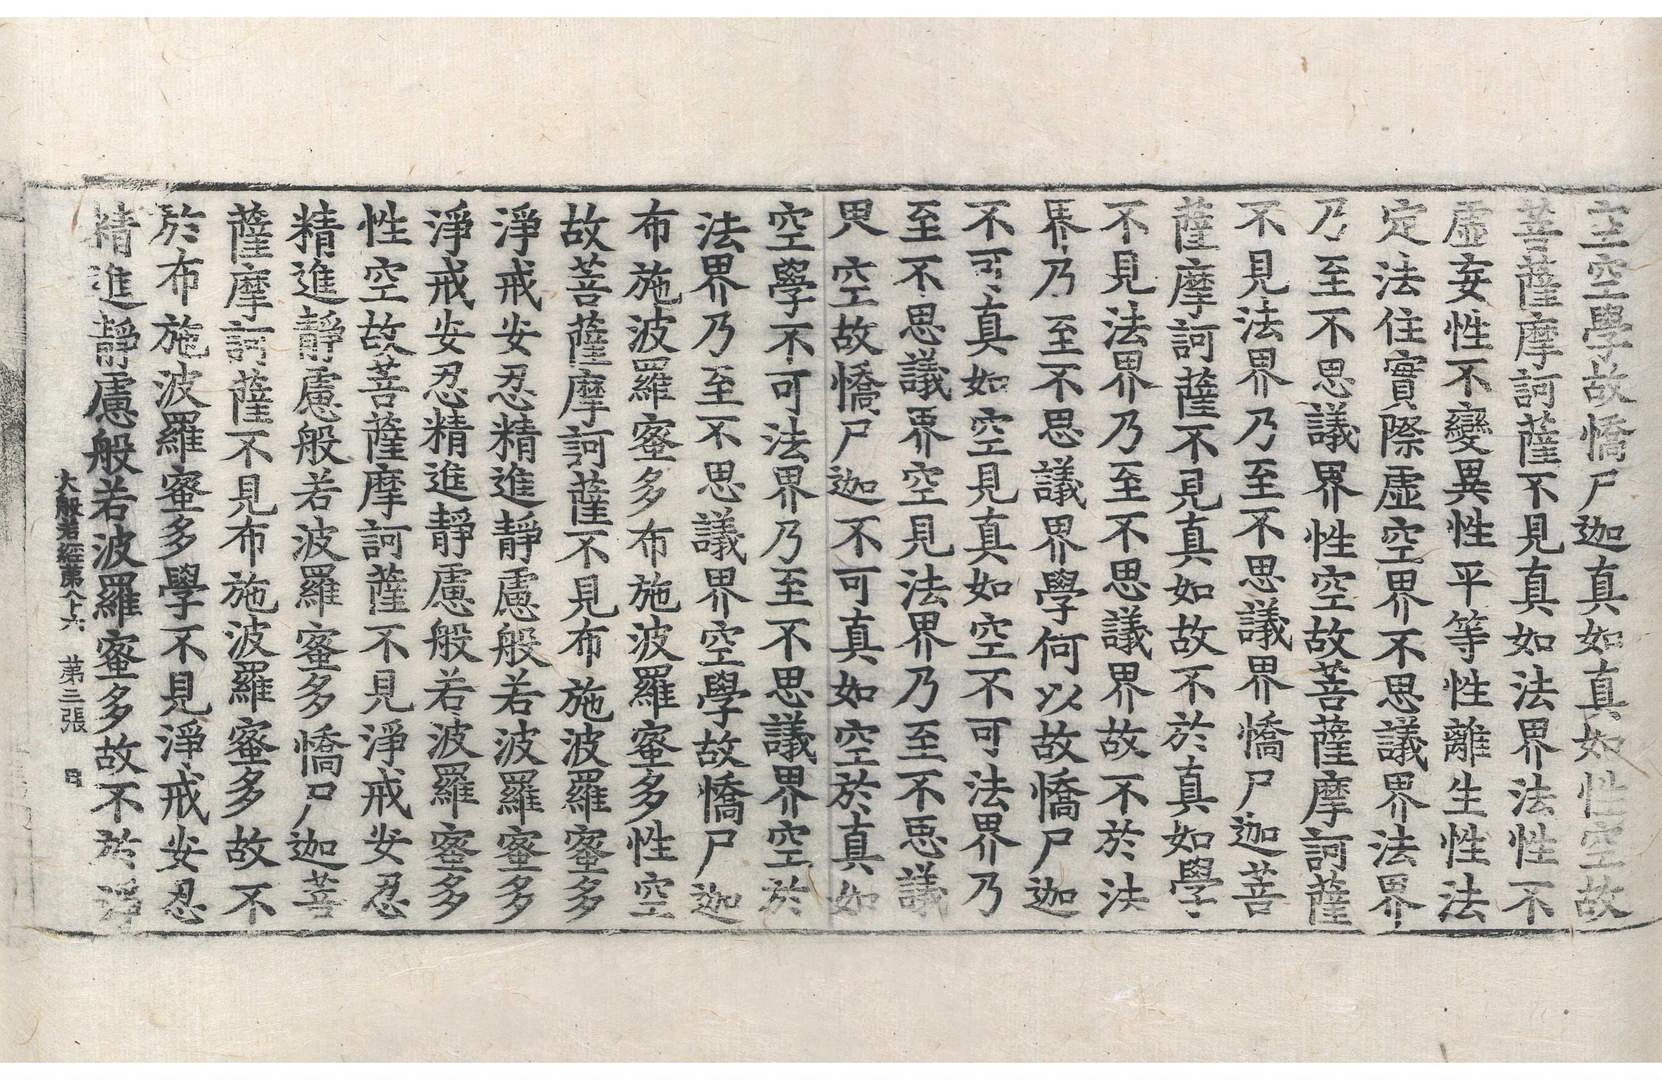 空學故憍尸迦真如真如性空故
菩薩摩訶薩不見真如法界法性不
虛妄性不變異性平等性離生性法
定法住實際虛空界不思議界法界
乃至不思議界性空故菩薩摩訶薩
不見法界乃至不思議界憍尸迦菩
薩摩訶薩不見真如故不於真如學
不見法界乃至不思議界故不於法
界乃至不思議界學何以故憍尸迦
不可真如空見真如空不可法界乃
至不思議界空見法界乃至不思議
界空故憍尸迦不可真如空於真如
空學不可法界乃至不思議界空於
法界乃至不思議界空學故憍尸迦
布施波羅蜜多布施波羅蜜多性空
故菩薩摩訶薩不見布施波羅蜜多
淨戒安忍精進靜慮般若波羅蜜多
淨戒安忍精進靜慮般若波羅蜜多
性空故菩薩摩訶薩不見淨戒安忍
精進靜慮般若波羅蜜多憍尸迦菩
薩摩訶薩不見布施波羅蜜多故不
於布施波羅蜜多學不見淨戒安忍
精進靜慮般若波羅蜜多故不於淨
大般若經第八十六 第三張